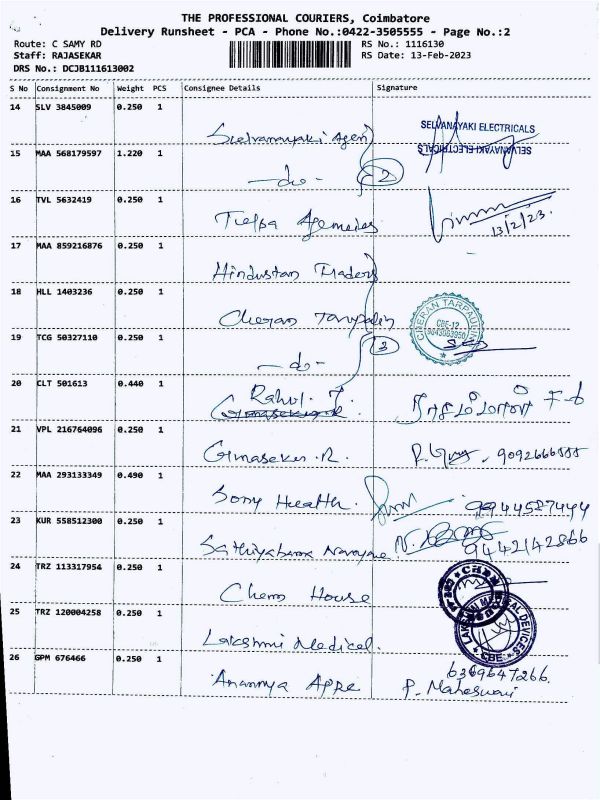 THE PROFESSIONAL COURIERS, Coimbatore
Delivery Runsheet - PCA - Phone No.:0422-3505555 - Page No.:2
Route: C SAMY RD RS No.: 1116130
Staff: RAJASEKAR RS Date: 13-Feb-2023
DRS No.: DCJB111613002
S No Consignment No Weight PCS Consignee Details Signature
14 SLV 3845009 0.250 1
Selvanayaki Agen SELVANAYAKI ELECTRICALS
15 MAA 568179597 1.220 1 SELVANAYAKI ELECTRICALS
-do- 2
16 TVL 5632419 0.250 1
Agencies 13/2/23.
17 MAA 859216876 0.250 1
Hindustan Traders
18 HLL 1403236 0.250 1
Cheran Tarpalin CHERAN TARPAULIN CBE-12
19 TCG 50327110 0.250 1
-do- 3
20 CLT 501613 0.440 1
Rahul. J.
21 VPL 216764096 0.250 1
Gunasekar. R.
22 MAA 293133349 0.490 1
Sony Health. 9944587444
23 KUR 558512300 0.250 1
Narayane 9442142866
24 TRZ 113317954 0.250 1
Chem House
25 TRZ 120004258 0.250 1 LAKSHMI MEDICAL DEVICES CBE
Lakshmi Medical.
26 GPM 676466 0.250 1 6369647266.
Anannya Appe P. Maheswari